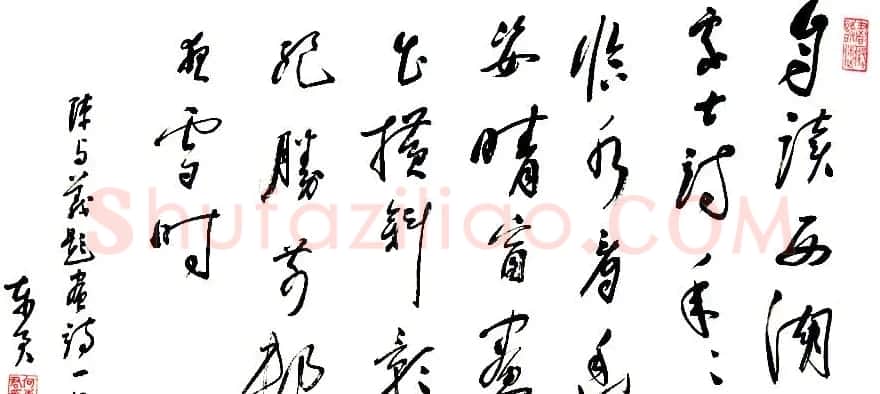 自读西湖
处士诗年々
临水看幽
姿晴窗畫
出横斜影
绝勝前村
夜雪时
陈与義题画诗一
Shufaziliao.COM